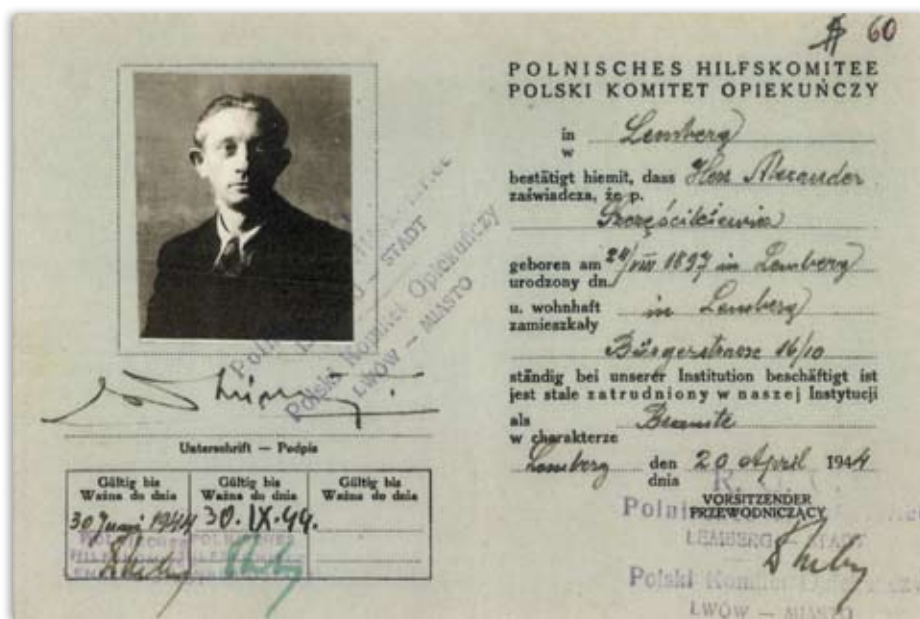 60
POLNISCHES HILFSKOMITEE
POLSKI KOMITET OPIEKUŃCZY
in Lemberg
w
bestätigt hiemit, dass Herr Alexander
zaświadcza, że p.
geboren am 24/VIII 1897 in Lemberg
urodzony dn.
u. wohnhaft in Lemberg
zamieszkały
Bürgerstrasse 16/10
ständig bei unserer Institution beschäftigt ist
jest stale zatrudniony w naszej Instytucji
als Beamte
w charakterze
Lemberg den 20 April 1944
dnia
VORSITZENDER
PRZEWODNICZĄCY
LEMBERG — STADT
Polski Komitet
LWÓW — MIASTO
STADT
Polski Komitet Opiekuńczy
LWÓW — MIASTO
Unterschrift — Podpis
Gültig bis Gültig bis Gültig bis
Ważna do dnia Ważna do dnia Ważna do dnia
30 Juni 1944 30. IX. 44.